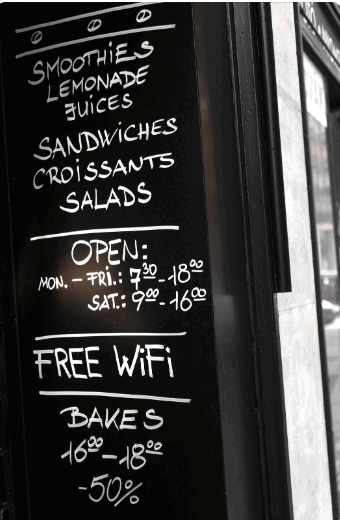 SMOOTHiES
LEMONADE
JUiCES
SANDWiCHES
CROiSSANTS
SALADS
OPEN:
MON. - FRi.: 7³⁰-18⁰⁰
SAT.: 9⁰⁰-16⁰⁰
FREE WiFi
BAKES
16⁰⁰-18⁰⁰
-50%